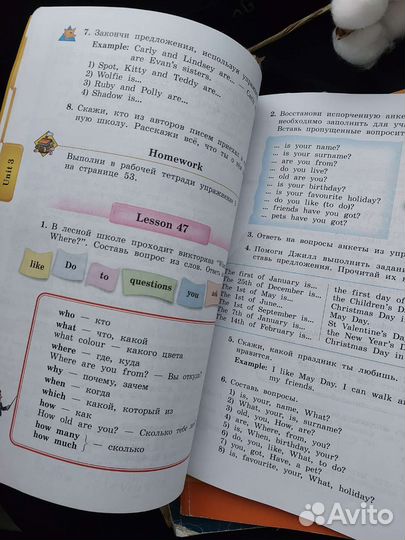 7. Закончи предложения, используя
Example: Carly and Lindsey are...
are Evan's sisters.
1) Spot, Kitty and Teddy are...
2) Wolfie is...
3) Ruby and Polly are...
4) Shadow is...
8. Скажи, кто из авторов писем
ную школу. Расскажи всё, что ты о
Homework
Выполни в рабочей тетради упражнение
на странице 53.
Unit 3
Lesson 47
1. В лесной школе проходит викторина
Where?". Составь вопрос из слов. Ответь
like
Do
to
questions
you
who — кто
what — что, какой
what colour — какого цвета
where — где, куда
Where are you from? — Вы откуда?
why — почему, зачем
when — когда
which — какой, который из
how — как
How old are you? — Сколько тебе лет
how many
how much
— сколько
2. Восстанови испорченную
необходимо заполнить для
Вставь пропущенные
... is your name?
... is your surname?
... are you from?
... do you live?
... old are you?
... is your birthday?
... is your favourite holiday?
... do you like (to do)?
... friends have you got?
... pets have you got?
3. Ответь на вопросы анкеты из
4. Помоги Джилл выполнить
ставь предложения. Прочитай их
The first of January is...
The 25th of December is...
The 1st of May is...
The 1st of June...
The 1st of September is...
The 7th of January is...
The 14th of February is...
the first day of
the Children's
Christmas Day in
May Day.
St Valentine's
the New Year's
Christmas Day in
5. Скажи, какой праздник ты любишь.
нравится.
Example: I like May Day. I can walk
my friends.
6. Составь вопросы.
1) is, your, name, What?
2) What, your, is, surname?
3) old, you, How, are?
4) are, Where, from, you?
5) is, When, birthday, your?
6) do, you, like, What, to do?
7) you, got, Have, a, pet?
8) is, favourite, your, What, holiday?
Avito